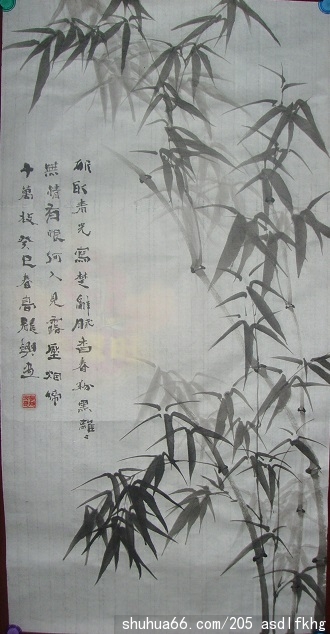 斫取青光寫楚辭膩香春粉黑離〻
無情有恨何人見露壓烟啼
千萬枝癸巳春
shuhua66.com/205 asdlfkhg